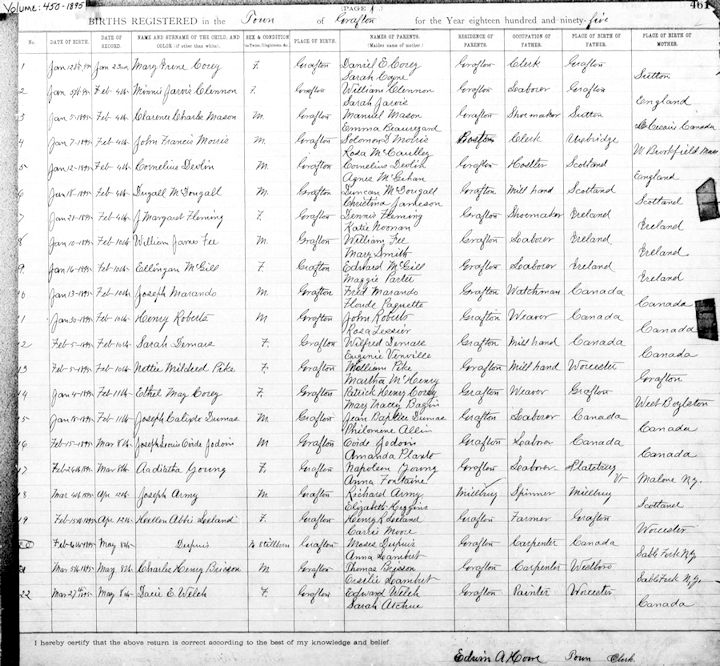 Volume: 450-1895
(PAGE 1.)
461
BIRTHS REGISTERED in the Town of Grafton for the Year eighteen hundred and ninety-five
No. DATE OF BIRTH. DATE OF RECORD. NAME AND SURNAME OF THE CHILD, AND COLOR (if other than white). SEX & CONDITION PLACE OF BIRTH. NAMES OF PARENTS. (Maiden name of mother.) RESIDENCE OF PARENTS. OCCUPATION OF FATHER. PLACE OF BIRTH OF FATHER. PLACE OF BIRTH OF MOTHER.
1 Mary Irene Corey F. Grafton Daniel E. Corey Grafton Clerk Grafton
Sarah Coyne Sutton
2 Feb 4th Minnie Jarvis Clennon F. Grafton William Clennon Grafton Laborer Grafton
Sarah Jarvis England
3 Jan 5-1895 Feb 4th Clarence Charles Mason M. Grafton Manuel Mason Grafton Shoemaker Sutton
Emma Beauregard Canada
4 Jan 7-1895 Feb 4th John Francis Morris M. Grafton Solomon D Morris Boston Clerk Uxbridge
Rosa McCaulley W. Brookfield Mass
5 Jan 12-1895 Feb 4th Cornelius Devlin M. Grafton Cornelius Devlin Grafton Hostler Scotland
Agnes McGehan England
6 Jan 18-1895 Feb 4th Dugall McDougall M. Grafton Duncan McDougall Grafton Mill hand Scotland
Christina Jameson Scotland
7 Jan 21-1895 Feb 4th J Margaret Fleming F. Grafton Dennis Fleming Grafton Shoemaker Ireland
Katie Noonan Ireland
8 Jan 10-1895 Feb 10th William James Fee M. Grafton William Fee Grafton Laborer Ireland
Mary Smith Ireland
9 Jan 16-1895 Feb 10th McGill F. Grafton Edward McGill Grafton Laborer Ireland
Maggie Ireland
10 Jan 13-1895 Feb 10th Joseph Marando M. Grafton Fred Marando Grafton Watchman Canada
Paquette Canada
11 Jan 30-1895 Feb 10th Henry Roberts M. Grafton John Roberts Grafton Weaver Canada
Rosa Lessier Canada
12 Feb 5-1895 Feb 10th Sarah Demare F. Grafton Wilfred Demare Grafton Mill hand Canada
Eugenie Canada
13 Feb 5-1895 Feb 10th Nettie Mildred Pike F. Grafton William Pike Grafton Mill hand Worcester
Martha McHenry Grafton
14 Feb 11th Ethel May Corey F. Grafton Patrick Henry Corey Grafton Weaver Grafton
Mary Tracey West Boylston
15 Jan 18-1895 Feb 11th Joseph Calixte Dumas M. Grafton Jean Dumas Grafton Laborer Canada
Philomine Allin Canada
16 Feb 15-1895 Mar 8th Joseph Louis Ovide Jodoin M. Grafton Ovide Jodoin Grafton Laborer Canada
Amanda Plante Canada
17 Feb 26th 1895 Mar 8th Young F. Grafton Napoleon Young Grafton Laborer Vt
Anna Fontaine Malone N.Y.
18 Mar 4th 1895 Apr 12th Joseph Army M. Grafton Richard Army Millbury Spinner Millbury
Elizabeth Higgins Scotland
19 Feb 15th 1895 Apr 12th Abbie Leeland F. Grafton Henry K Leeland Grafton Farmer Grafton
Carrie Moore Worcester
20 May 8th Dupuis stillborn Grafton Moses Dupuis Grafton Carpenter Canada
Anna Lambert Sable Fork N.Y.
21 Mar 5th 1895 May 8th Charles Henry Brisson M. Grafton Thomas Brisson Grafton Carpenter Westboro
Lambert Sable Fork N.Y.
22 Mar 27th 1895 May 8th E. Welch F. Grafton Edward Welch Grafton Painter Worcester
Sarah Canada
I hereby certify that the above return is correct according to the best of my knowledge and belief.
Edwin A. Howe Town Clerk